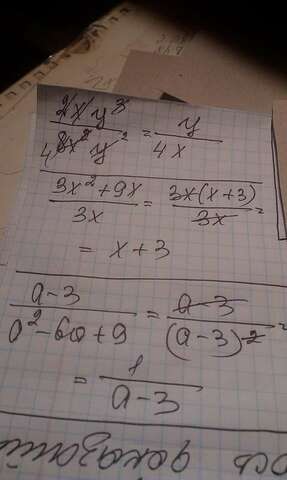 2xy³/4 8x²y² = y/4x
3x²+9x/3x = 3x(x+3)/3x =
= x+3
a-3/a²-6a+9 = a-3/(a-3)² =
= 1/a-3